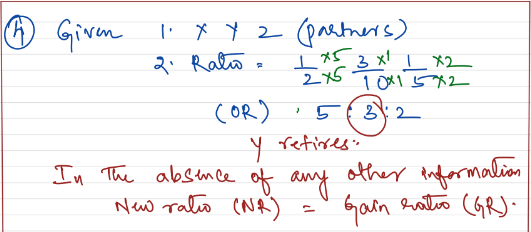 A Given 1. X Y Z (partners)
2. Ratio = 1/2 ×5/×5 3/10 ×1/×1 1/5 ×2/×2
(OR) 5 : 3 : 2
Y retires:-
In The absence of any other information
New ratio (NR) = Gain ratio (GR).